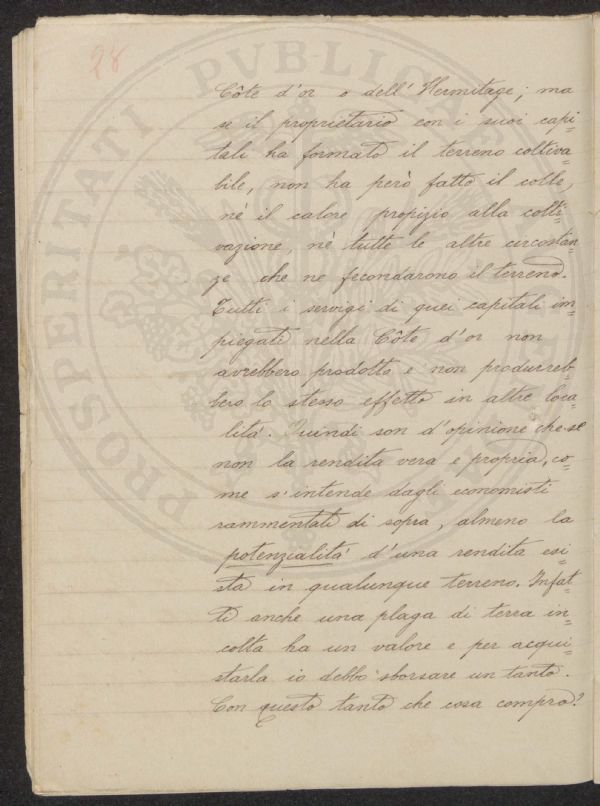 28
Côte d'or o dell' Hermitage; ma
se il proprietario con i suoi capi=
tali ha formato il terreno coltiva=
bile, non ha però fatto il colle,
nè il calore propizio alla colti=
vazione, nè tutte le altre circostan=
ze che ne fecondarono il terreno.
Tutti i servigi di quei capitali im=
piegati nella Côte d'or non
avrebbero prodotto e non produrreb=
bero lo stesso effetto in altre loca=
lità. Quindi son d'opinione che se
non la rendita vera e propria, co=
me s'intende dagli economisti
rammentati di sopra, almeno la
potenzialità d'una rendita esi=
sta in qualunque terreno. Infat=
ti anche una plaga di terra in=
colta ha un valore e per acqui=
starla io debbo sborsare un tanto.
Con questo tanto che cosa compro?
PROSPERITATI PVBLICAE